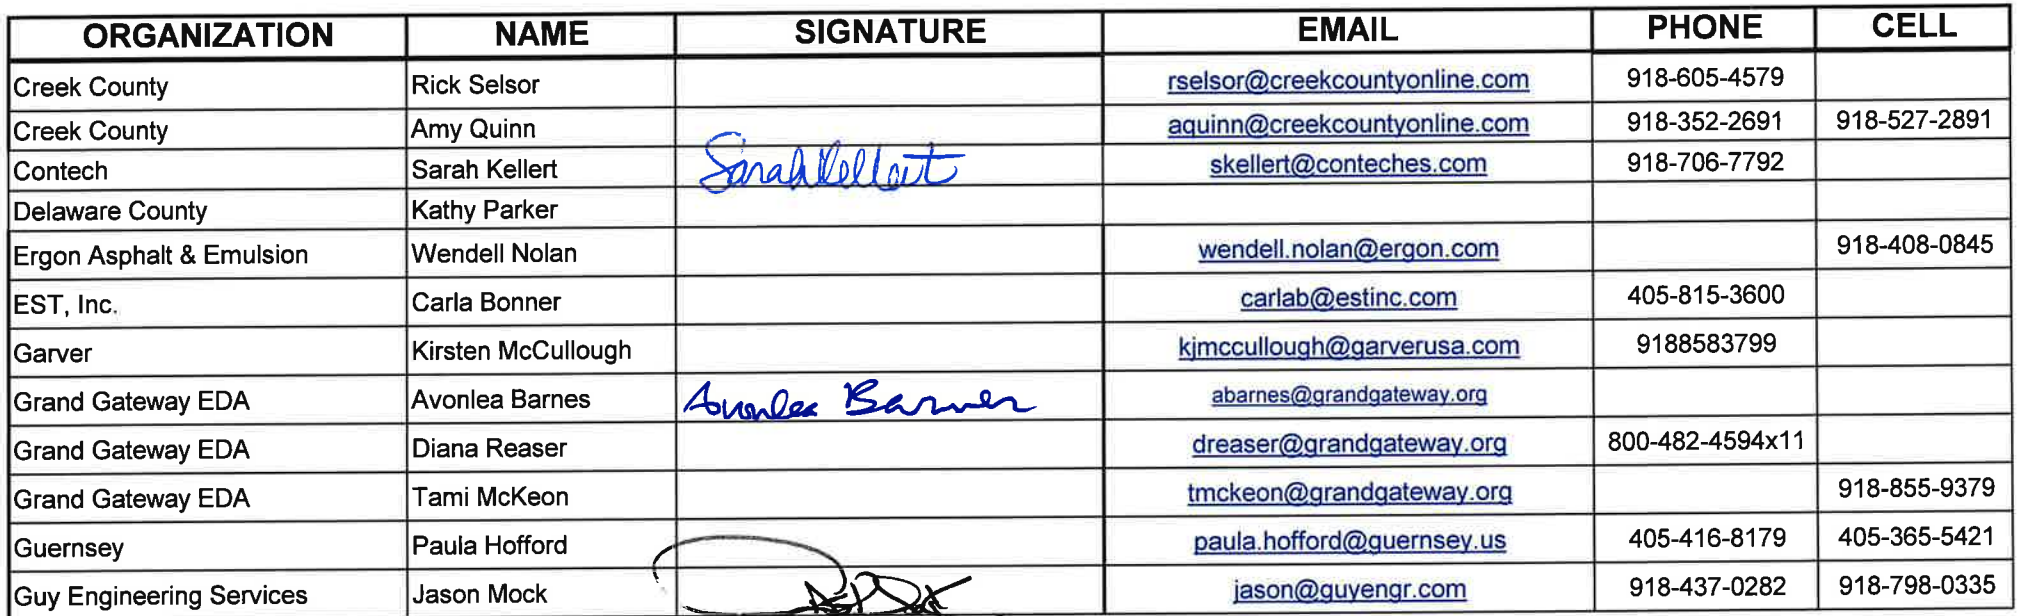 ORGANIZATION NAME SIGNATURE EMAIL PHONE CELL
Creek County Rick Selsor rselsor@creekcountyonline.com 918-605-4579
Creek County Amy Quinn aquinn@creekcountyonline.com 918-352-2691 918-527-2891
Contech Sarah Kellert Sarah Kellert skellert@conteches.com 918-706-7792
Delaware County Kathy Parker
Ergon Asphalt & Emulsion Wendell Nolan wendell.nolan@ergon.com 918-408-0845
EST, Inc. Carla Bonner carlab@estinc.com 405-815-3600
Garver Kirsten McCullough kjmccullough@garverusa.com 9188583799
Grand Gateway EDA Avonlea Barnes Avonlea Barnes abarnes@grandgateway.org
Grand Gateway EDA Diana Reaser dreaser@grandgateway.org 800-482-4594x11
Grand Gateway EDA Tami McKeon tmckeon@grandgateway.org 918-855-9379
Guernsey Paula Hofford paula.hofford@guernsey.us 405-416-8179 405-365-5421
Guy Engineering Services Jason Mock jason@guyengr.com 918-437-0282 918-798-0335